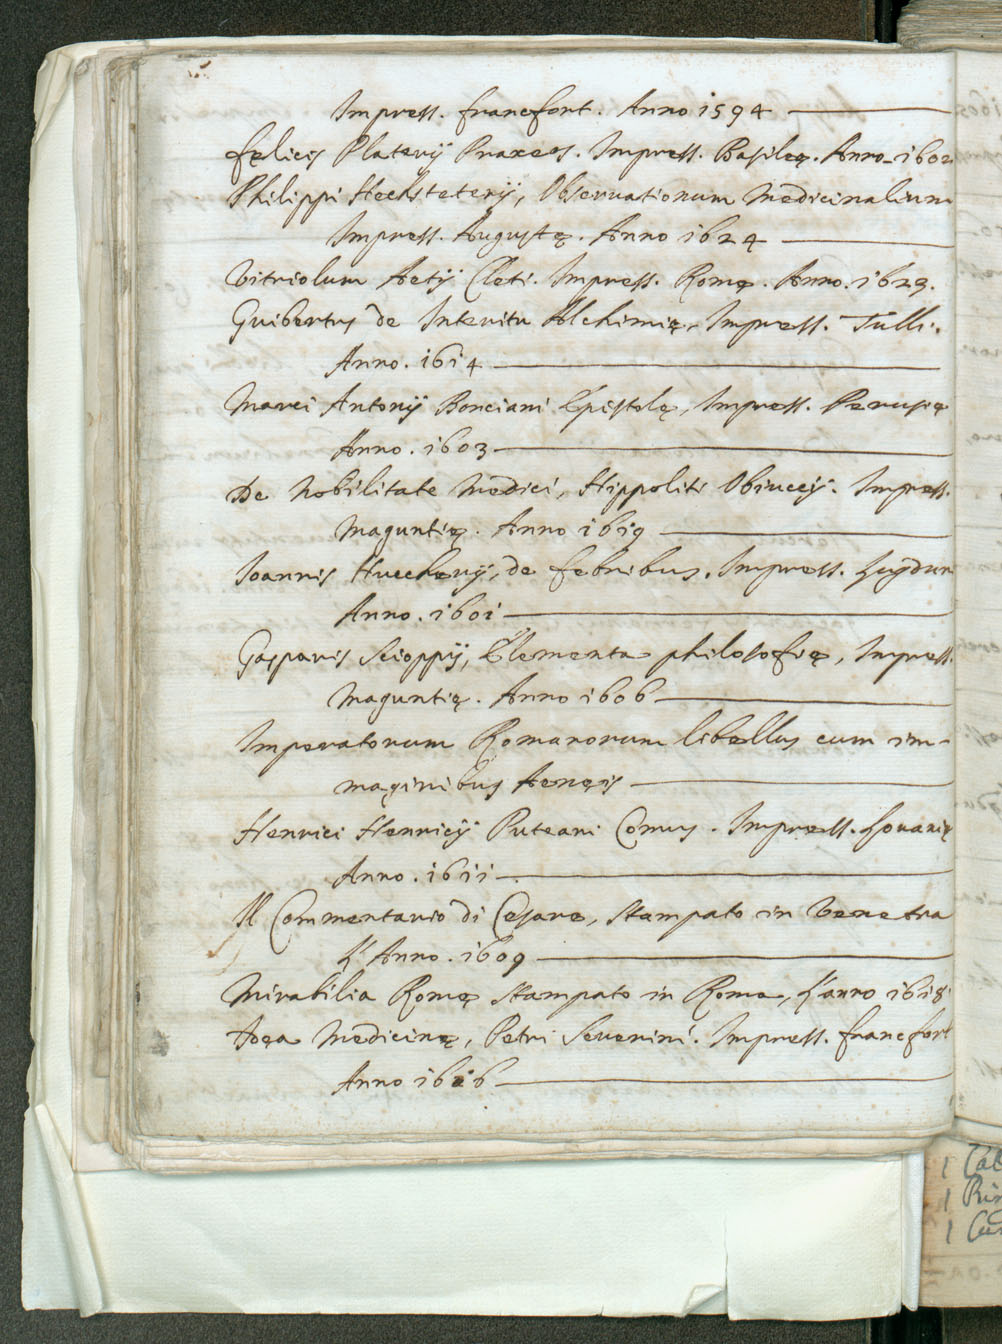 Impress. francfort. Anno 1594
fęlicis Platerÿ Praxeos. Impress. Basileę. Anno 1602
Philippi Hechsteterÿ, Obseruationum Medicinalium
Impress. Augustę. Anno 1624
Vitriolum Aetÿ Cleti. Impress. Romę. Anno. 1623.
Guibertus de Interitu Alchimię, Impress. Tulli.
Anno. 1614
Marci Antonÿ Bonciani Epistolę, Impress. Perusię
Anno. 1603
De Nobilitate Medici, Hippoliti Obiuccÿ. Impress.
Maguntię. Anno 1619
Ioannis Huccherÿ, de febribus. Impress. Lugdun
Anno. 1601
Gasparis Scioppÿ, Elementa philosofię, Impress.
Maguntię. Anno 1606
Imperatorum Romanorum libellus cum im-
maginibus Aeneis
Henrici Henricÿ Puteani Comus. Impress. Louanię
Anno. 1611
Il Commentario di Cesare, stampato in Venetia
L'Anno. 1609
Mirabilia Romę stampato in Roma, L'anno 1618.
Idęa Medicinę, Petri Seuerini. Impress. francfort
Anno 1616
1 
1 
1